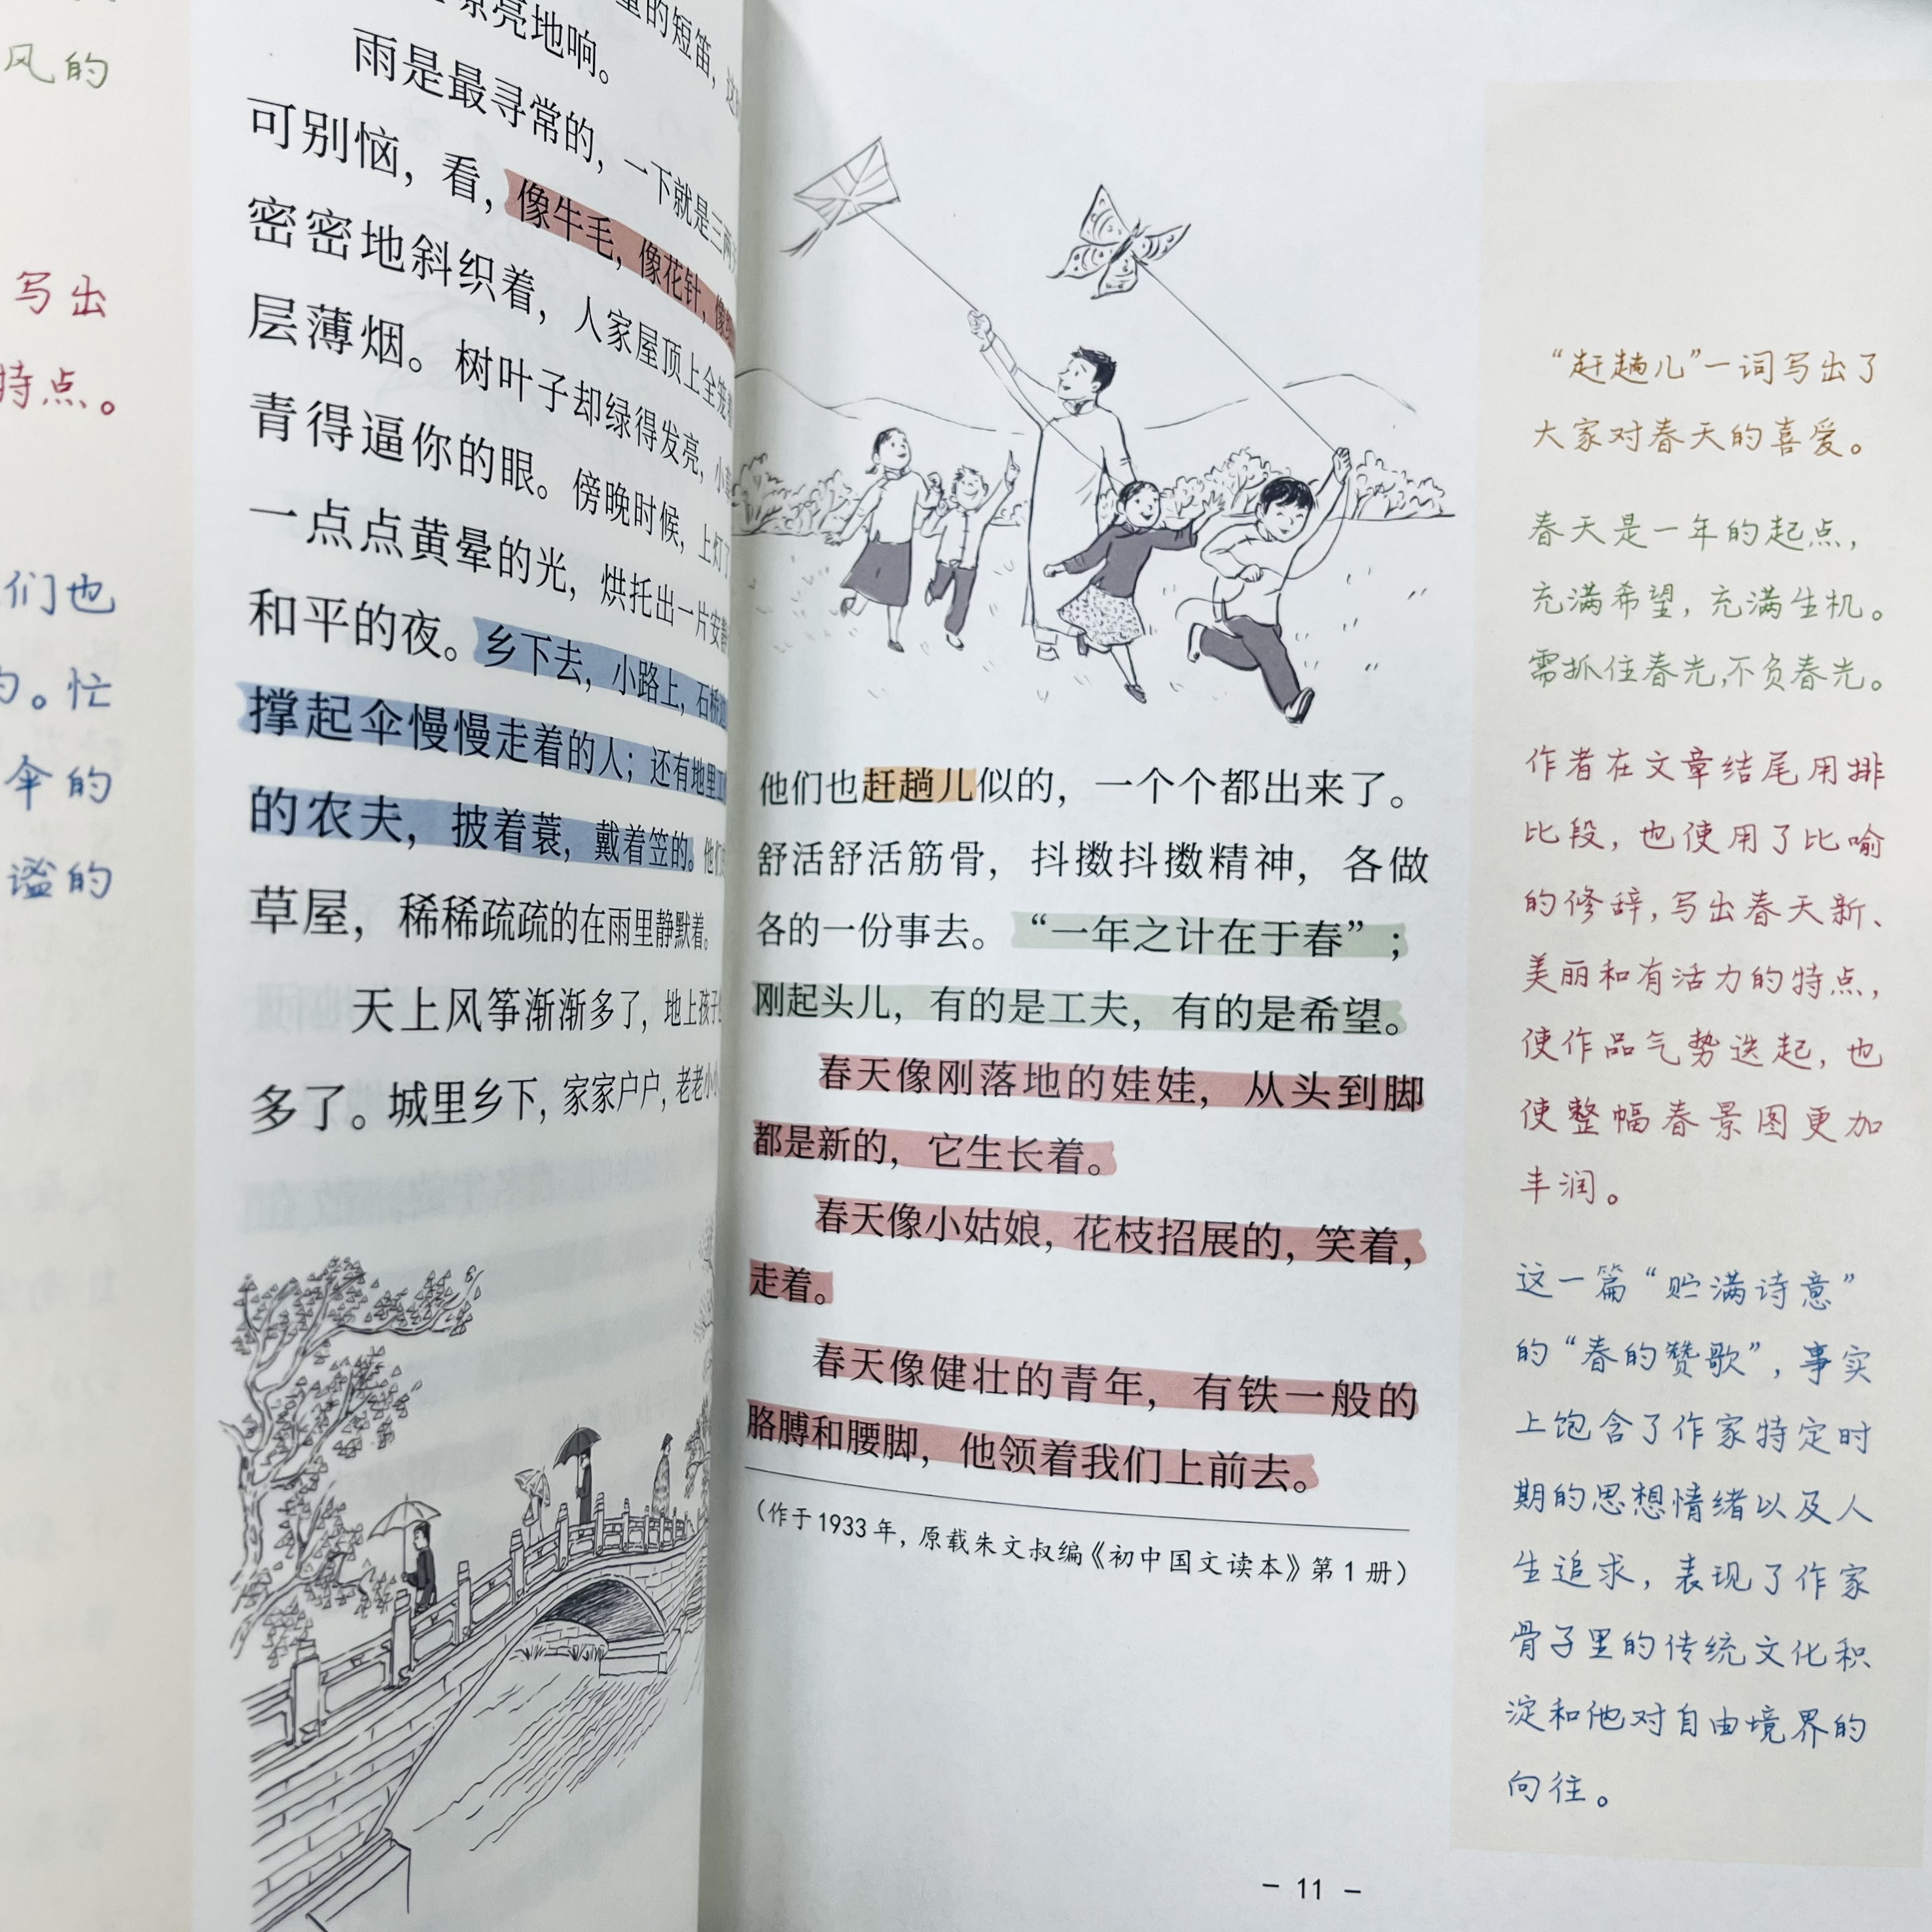 风的
写出
特点。
们也
。忙
伞的
谧的
亮地响。
的短笛，
雨是最寻常的，一下就是三两
可别恼，看，像牛毛，像花针，像
密密地斜织着，人家屋顶上全笼着
层薄烟。树叶子却绿得发亮，小
青得逼你的眼。傍晚时候，上灯了
一点点黄晕的光，烘托出一片安静
和平的夜。乡下去，小路上，石桥
撑起伞慢慢走着的人；还有地里工
的农夫，披着蓑，戴着笠的。他们
草屋，稀稀疏疏的在雨里静默着。
天上风筝渐渐多了，地上孩子
多了。城里乡下，家家户户，老老小
他们也赶趟儿似的，一个个都出来了。
舒活舒活筋骨，抖擞抖擞精神，各做
各的一份事去。“一年之计在于春”；
刚起头儿，有的是工夫，有的是希望。
春天像刚落地的娃娃，从头到脚
都是新的，它生长着。
春天像小姑娘，花枝招展的，笑着，
走着。
春天像健壮的青年，有铁一般的
胳膊和腰脚，他领着我们上前去。
（作于1933年，原载朱文叔编《初中国文读本》第1册）
“赶趟儿”一词写出了
大家对春天的喜爱。
春天是一年的起点，
充满希望，充满生机。
需抓住春光，不负春光。
作者在文章结尾用排
比段，也使用了比喻
的修辞，写出春天新、
美丽和有活力的特点，
使作品气势迭起，也
使整幅春景图更加
丰润。
这一篇“贮满诗意”
的“春的赞歌”，事实
上饱含了作家特定时
期的思想情绪以及人
生追求，表现了作家
骨子里的传统文化积
淀和他对自由境界的
向往。
- 11 -